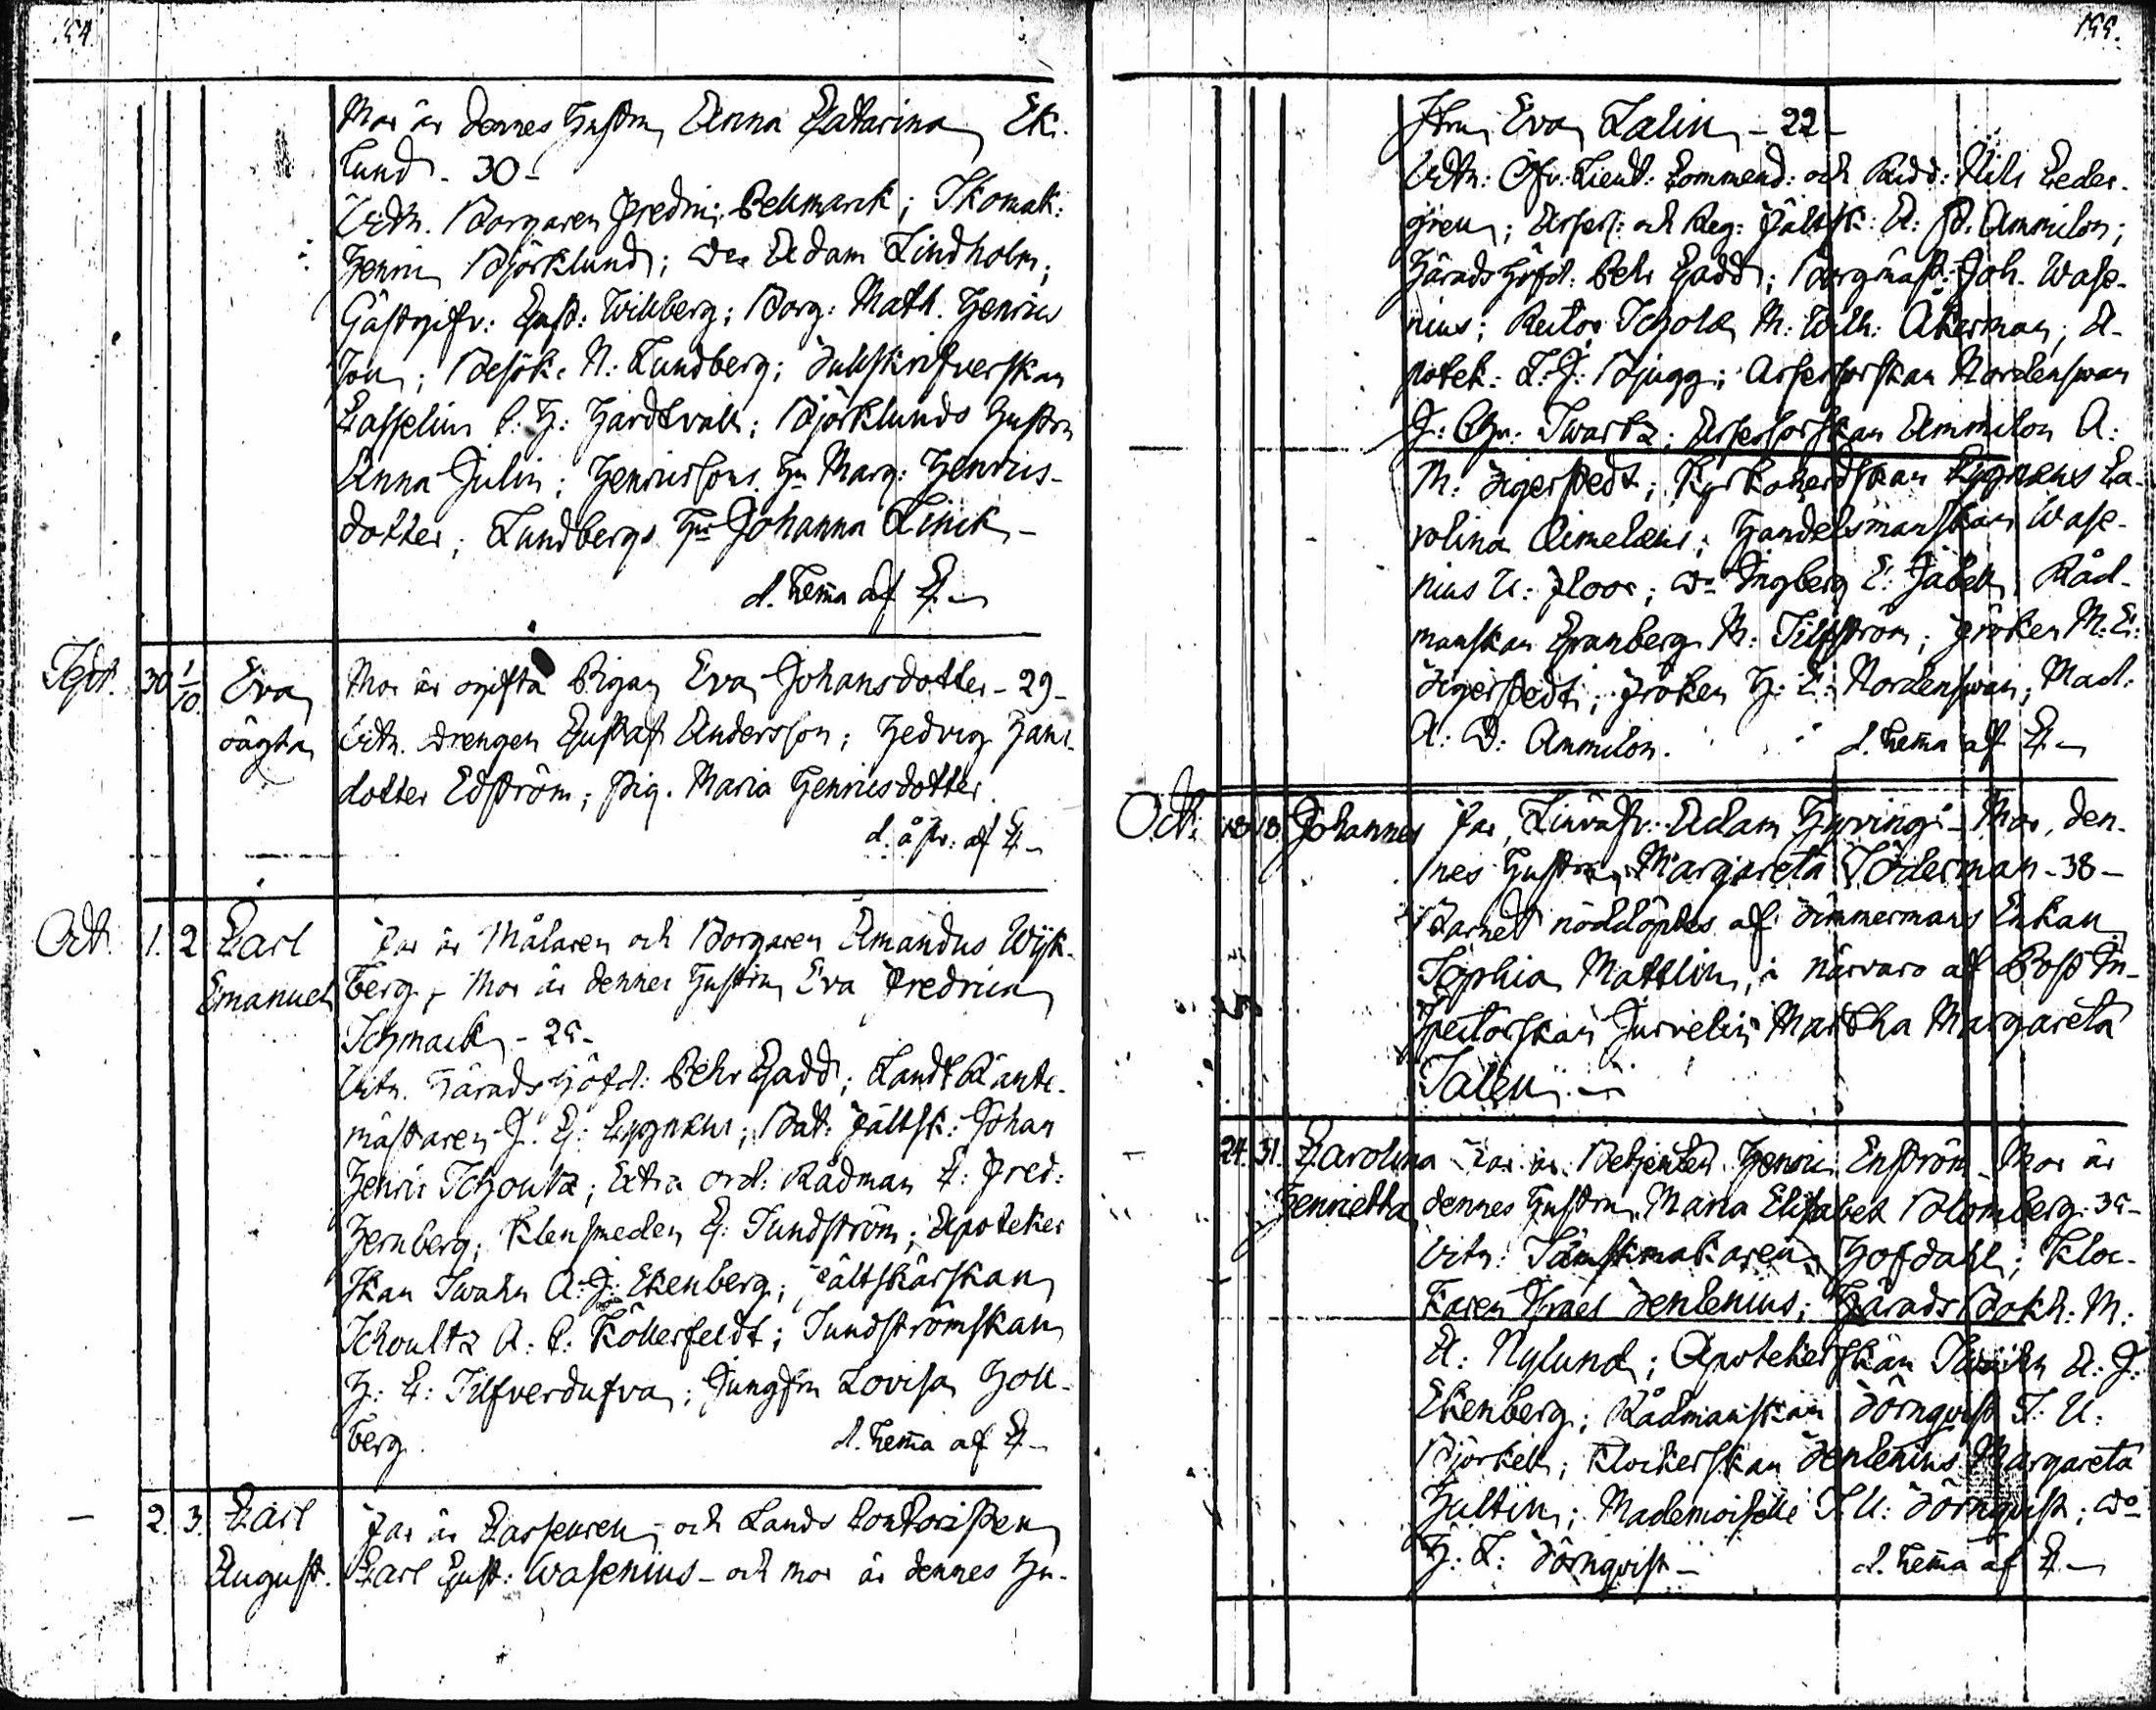 154.
Mor är dennes Hustru, Anna Catarina Ek-
lund - 30 -
Vittn. Borgaren Fredric Bekmark; Skomak:
Henric Björklund; do Adam Lindholm;
Gästgifv: Gust: Wikberg; Borg: Math. Henrics
son; Besök. N: Lundberg; Tullskrifverskan
Casselius C: H: Hardtvall; Björklunds hustru
Anna Julin; Henricssons Hu Marg: Henrics-
dotter; Lundbergs Hu Johanna Linck -
d. hema af
Sept. 30 1/10. Eva Mor är ogifta Pigan Eva Johansdotter - 29 -
oägta Vittn. Drengen Gustaf Andersson; Hedvig Hans-
dotter Edström; pig. Maria Henricsdotter
d. å
Oct. 1. 2 Carl Far är Målaren och Borgaren Amandus Wijk-
Emanuel berg, Mor är dennes Hustru Eva Fredrica
Schmack - 25 -
Vittn. Häradshöfd: Pehr Gadd; LandtRänte-
mästaren J. G: Cygnæus; Bat: Fältsk: Johan
Henric Schoultz; Extra ord: Rådman C: Fred:
Hernberg; Klensmeden G: Sundström; Apoteker
skan Swahn A: J: Ekenberg; Fältskärskan
Schoultz A: C: Köllerfeldt; Sundströmskan
H: C: Silfverdufva; Jungfru Lovisa Holl-
berg. d. hema af
- 2. 3. Carl Far är Casseuren och Lands Contoristen
August. Carl Gust: Wasenius - och mor är dennes Hu-
155.
stru, Eva Salin - 22 -
Vittn: Öfv: Lieut: Commend: och Ridd: Nils Ceder-
gren; Assess: och Reg: Fältsk: A: Ammilon;
Häradshöfd: Pehr Gadd; Borgmäst: Joh. Wase-
nius; Rector Scholæ M: Wilh: Åkerman; A-
potek: L: J: Bjugg; Assessorskan Nordenswan
J: Chr: Swartz; Assessorskan Ammilon A:
M: Tigerstedt; Kyrkoherdskan Cygnæus Ca-
rolina Aimelæus; Handelsmanskan Wase-
nius U: Floor; do Ingberg E: Jabell, Råd-
manskan Granberg M: Silfström; Fröken M: E:
Tigerstedt; Fröken H: E: Nordenswan; Mad:
A: D: Ammilon. d. hema af
Oct: 18 18 Johannes Far, Adam Hyving - Mor, den-
nes Hustru, Margareta Söderman - 38 -
Barnet nöddöptes af Timmermans Enkan
Sophia Mattlin, i närvaro af Post In-
spectorskan Jurvelin Martha Margareta
Salen. -
24. 31. Carolina Far är Betjenten Henric Enström Mor är
Henrietta dennes Hustru, Maria Elisabet Blomberg. 35 -
Vittn: Sämskmakaren Hofdahl; Kloc-
karen Israel Zenlenius; Härads Bokh: M:
A: Nylund; Apotekerskan Swahn A: J:
Ekenberg; Rådmanskan Törnqvist S: U:
Björkell; Klockerskan Zenlenius Margareta
Hultin; Mademoiselle S: U: Törnqvist; do
H: L: Törnqvist - d. hema af